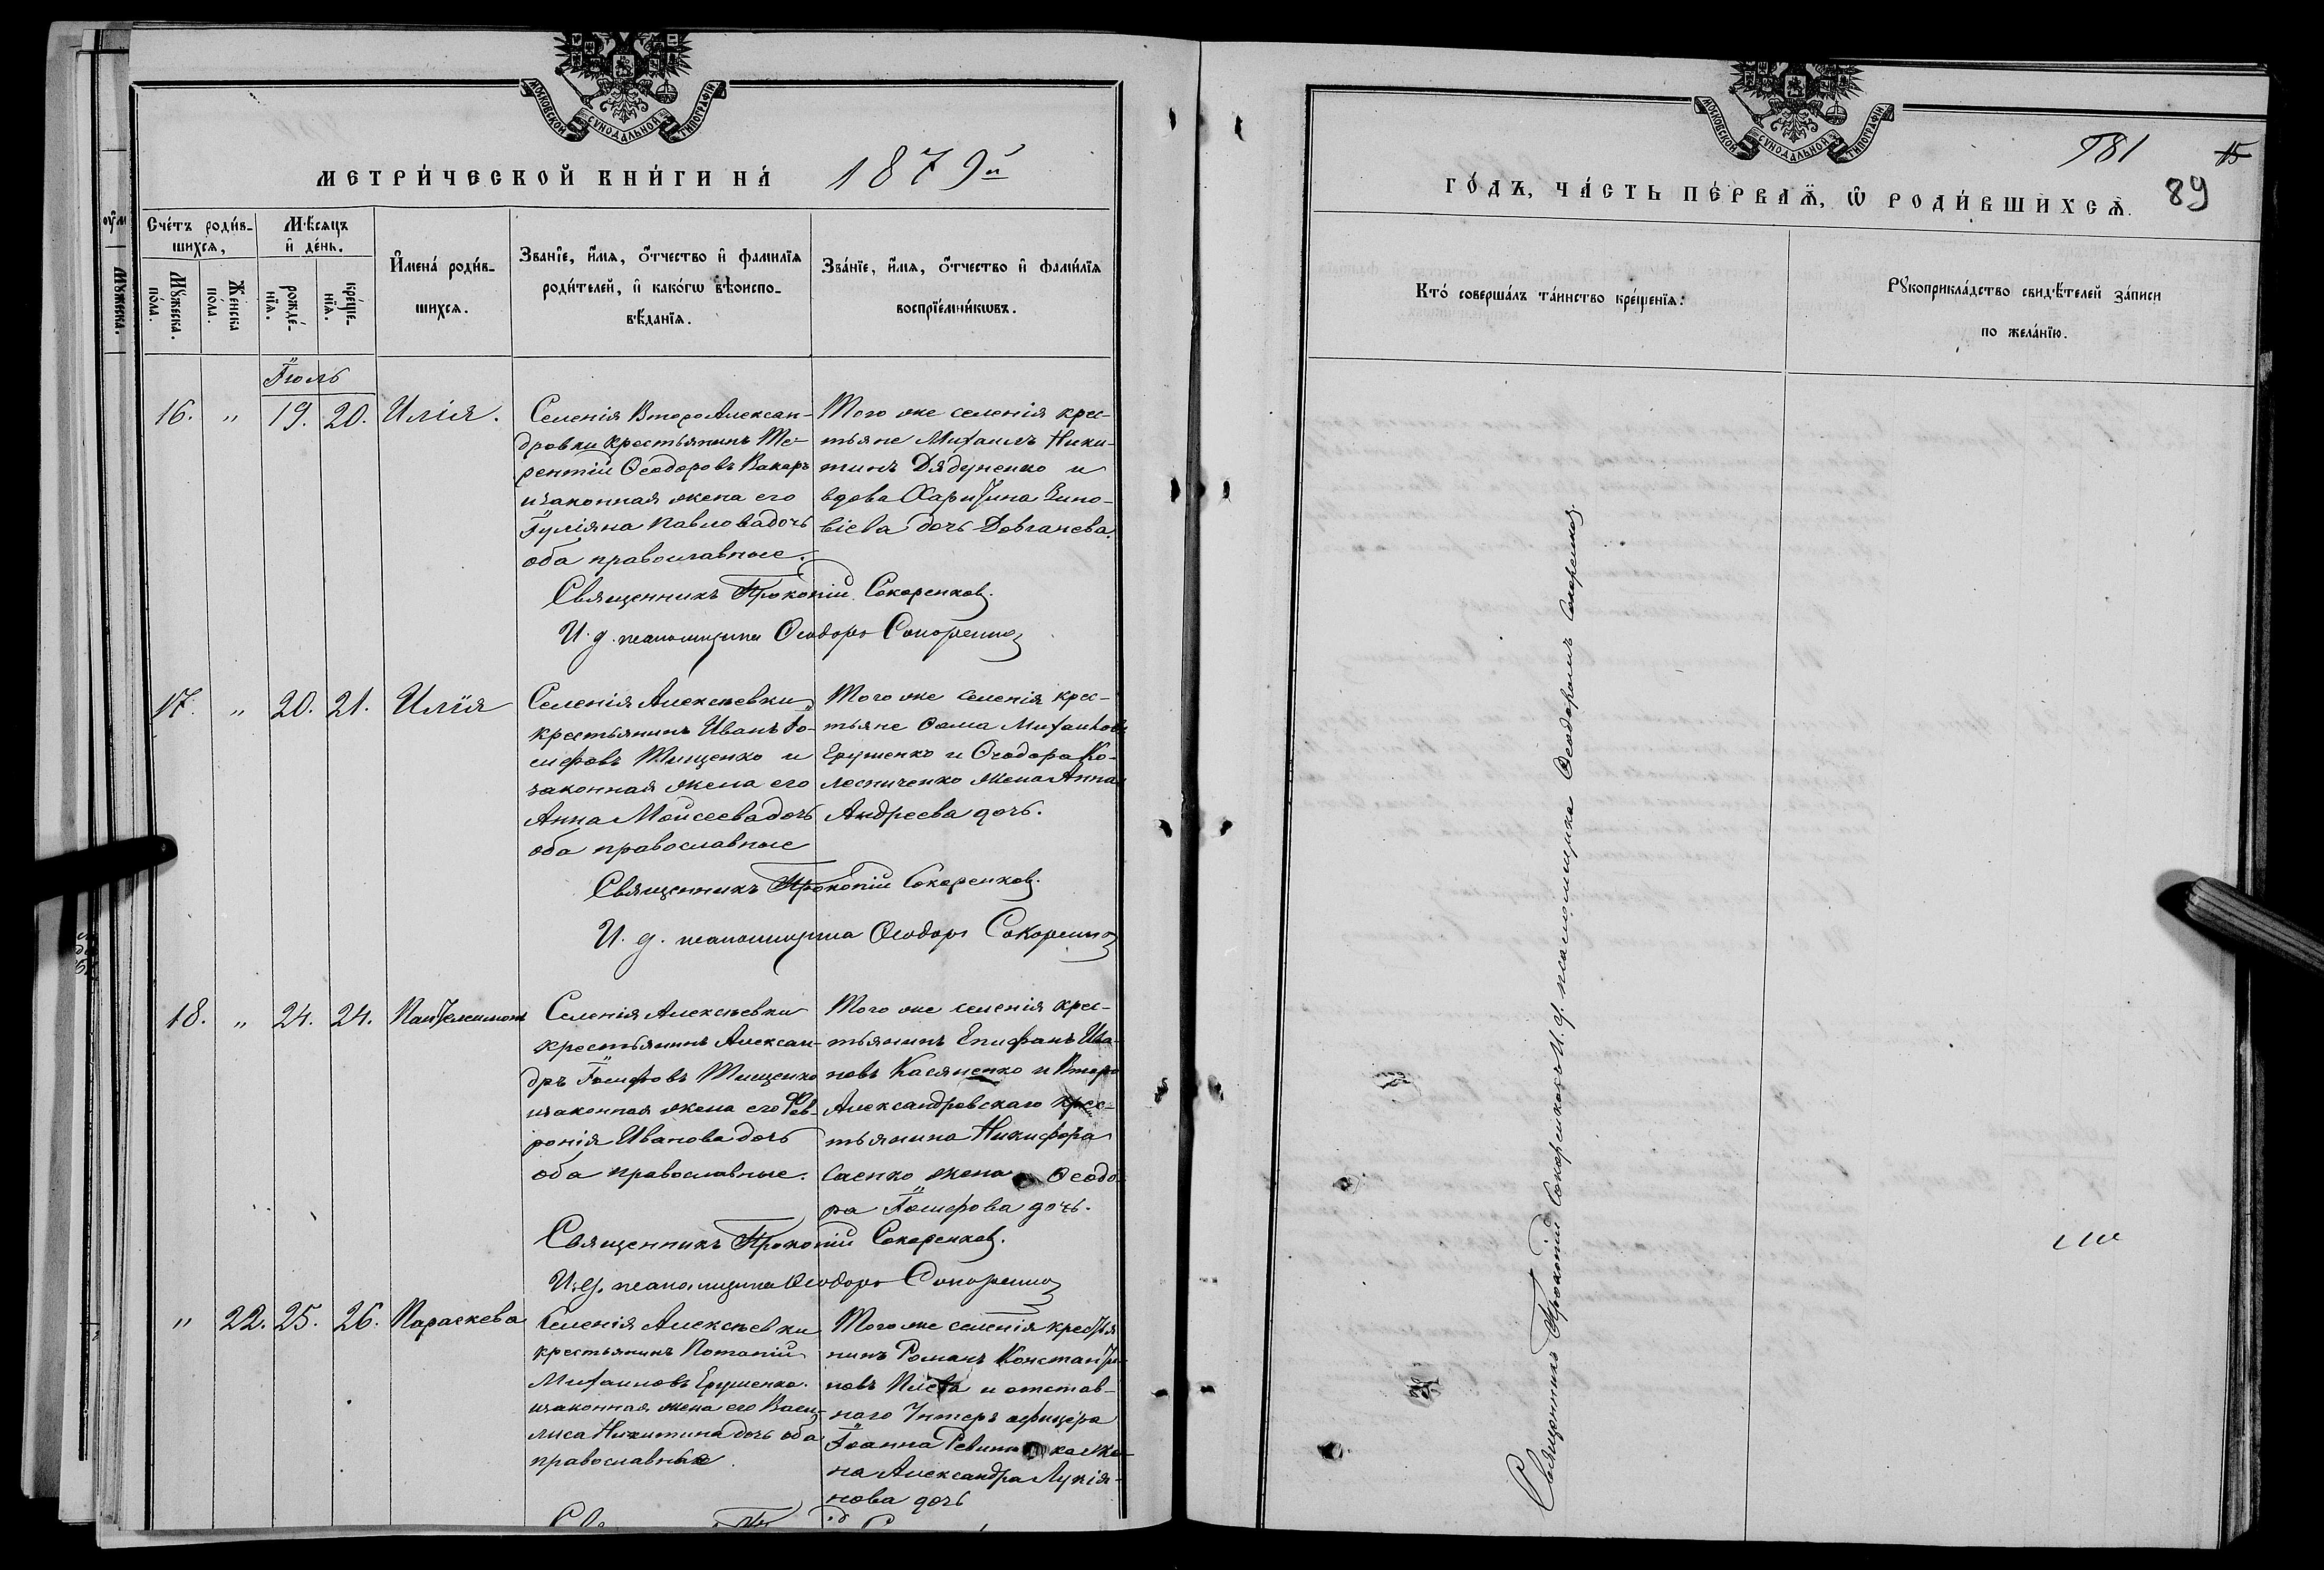 МОСКОВСКОЙ СѴНОДАЛЬНОЙ ТИПОГРАФІИ
МЕТРИ́ЧЕСКОЙ КНИ́ГИ НА́ 1879й
Сче́тъ роди́в-
шихся,
Мѣсяцъ
и҆ де́нь.
Мꙋ́жеска
по́ла.
Же́нска
по́ла.
рожде́-
нїя.
креще́-
нїя.
И҆мена́ роди́в-
шихся.
Зва́нїе, и҆́мя, ѻ҆́тчество и҆ фами́лїя
роди́телей, и҆ како́гѡ вѣ̀роиспо-
вѣ́данїя.
Зва́нїе, и҆́мя, ѻ҆́тчество и҆ фами́лїя
воспрїе́мникѡвъ.
Іюль
16. " 19. 20. Илія.
Селенія Второ Алексан-
дровки крестьянинъ Те-
рентій Ѳеодоровъ Вакаръ
и законная жена его
Іуліяна Павлова дочь
оба православные.
Того же селенія крес-
тьяне Михаилъ Ники-
тинъ Дядуненко и
вдова Харитина Зино-
віева дочь Довганева.
Священникъ Прокопій Сокоренковъ.
И. д. псаломщика Ѳеодоръ Сокоренко
17. " 20. 21. Илія
Селенія Алексѣевки
крестьянинъ Иванъ Іо-
сифовъ Тищенко и
законная жена его
Анна Моисеева дочь
оба православные
Того же селенія крес-
тьяне Ѳома Михаиловъ
Ерушенко и Ѳеодора Ко-
лесниченко жена Анна
Андреева дочь.
Священникъ Прокопій Сокоренковъ.
И. д. псаломщика Ѳеодоръ Сокоренко
18. " 24. 24. Пантелеимонъ
Селенія Алексѣевки
крестьянинъ Алексан-
дръ Іосифовъ Тищенко
и законная жена его Фев-
ронія Иванова дочь
оба православные.
Того же селенія крес-
тьянинъ Епифанъ Ива-
новъ Касяненко и Второ
Александровскаго крес-
тьянина Никифора
Саенко жена Ѳеодо-
ра Іосифова дочь.
Священникъ Прокопій Сокоренковъ.
И. д. псаломщика Ѳеодоръ Сокоренко
" 22. 25. 26. Параскева
Селенія Алексѣевки
крестьянинъ Потапій
Михаиловъ Ерушенко
и законная жена его Васи-
лиса Никитина дочь оба
православные.
Того же селенія крестья
нинъ Романъ Константи-
новъ и отстав-
наго Унтеръ офицера
Іоанна жe-
на Александра Лукія-
нова дочь
МОСКОВСКОЙ СѴНОДАЛЬНОЙ ТИПОГРАФІИ
181 15
89
ГО́ДЪ, ЧА́СТЬ ПЕ́РВАѦ, Ѡ҆ РОДИ́ВШИХСѦ.
Кто́ соверша́лъ та́инство креще́нїя:
Рꙋкоприкла́дство свидѣ́телей за́писи
по жела́нїю.
Священникъ Прокопій Сокоренковъ И. д. псаломщика Ѳеодоромъ Сокоренко